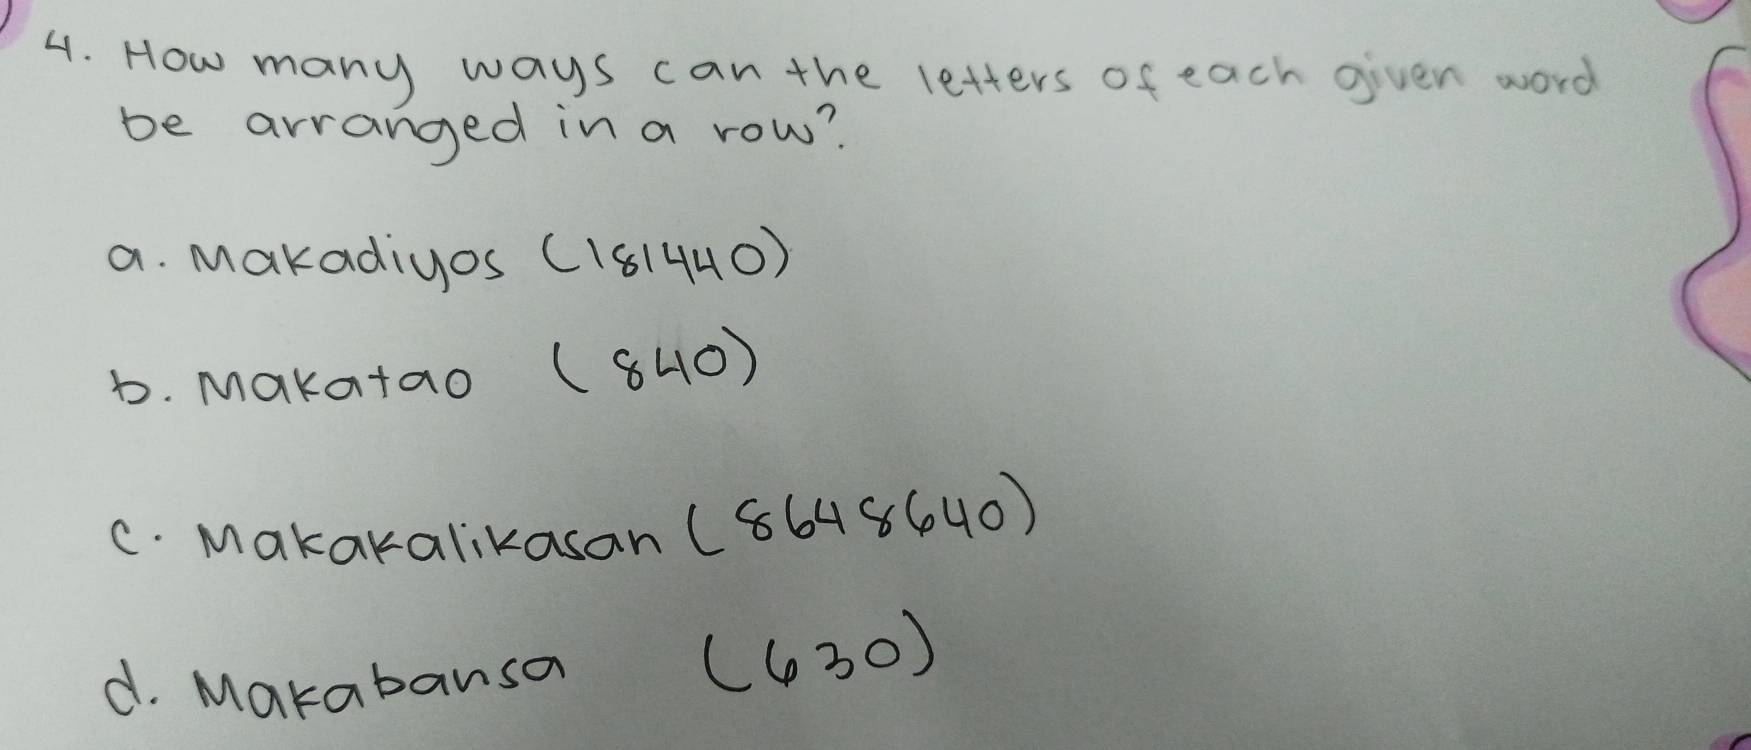 4. How many ways can the letters of each given word
be arranged in a row?
a. Makadiyos (181440)
b. Makatao (840)
c. Makakalikasan (8648640)
d. Makabansa (630)